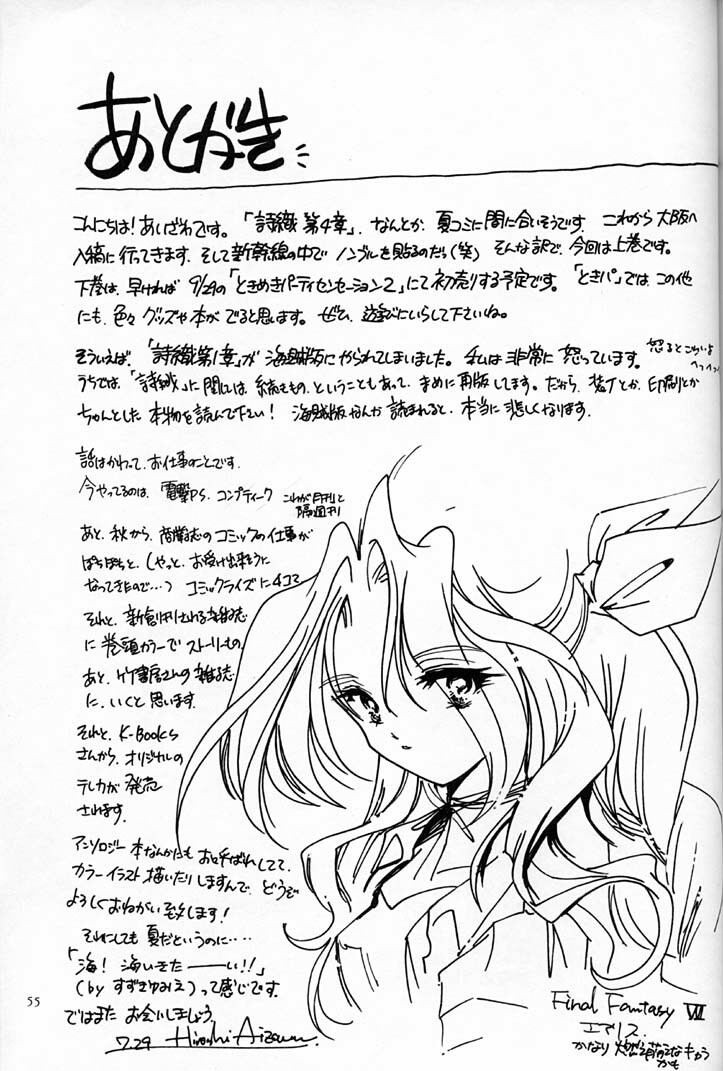 あとがき
こんにちは！あいざわです。「詩織 第4章」、なんとか、夏コミに間に合いそうです。これから大阪へ
入稿に行ってきます。そして新幹線の中でノンブルを貼るのだぅ（笑）そんな訳で、今回は上巻です。
下巻は、早ければ 9/29の「ときめきパーティセンセーション2」にて初売りする予定です。「ときパ」では、この他
にも、色々グッズや本がでると思います。ぜひ、遊びにいらして下さいね。
そういえば、「詩織第1章」が海賊版にやられてしまいました。私は非常に怒っています。
怒るとこわいよ
へっへっへっ
うちでは、「詩織」に関しては、続きもの、ということもあって、まめに再版してます。だから、装丁とか、印刷とか
ちゃんとした本物を読んで下さい！海賊版なんか読まれると、本当に悲しくなります。
話はかわって、お仕事のことです。
今やってるのは、電撃PS、コンプティーク
これが月刊と
隔週刊
あと、秋から、商業誌のコミックの仕事が
ぽちぽちと、（やっと、お受け出来そうに
なってきたので…）コミックライズに4コマ
それと、新創刊される雑誌
に巻頭カラーでストーリーもの。
あと、竹書房さんの雑誌
に、いくと思います。
それと、K-Books
さんから、オリジナルの
テレカが発売
されます。
アンソロジー本なんかにもお呼ばれしてて、
カラーイラスト描いたりしますんで、どうぞ
よろしくおねがい致します！
それにしても夏だというのに‥‥
「海！海いきたーーい！！」
（by すずきゆみえ）って感じです。
ではまたお会いしましょう。
7.29 Hiroshi Aizawa.
Final Fantasy VII
エアリス.
かなり燃え萌なキャラ
かも
55